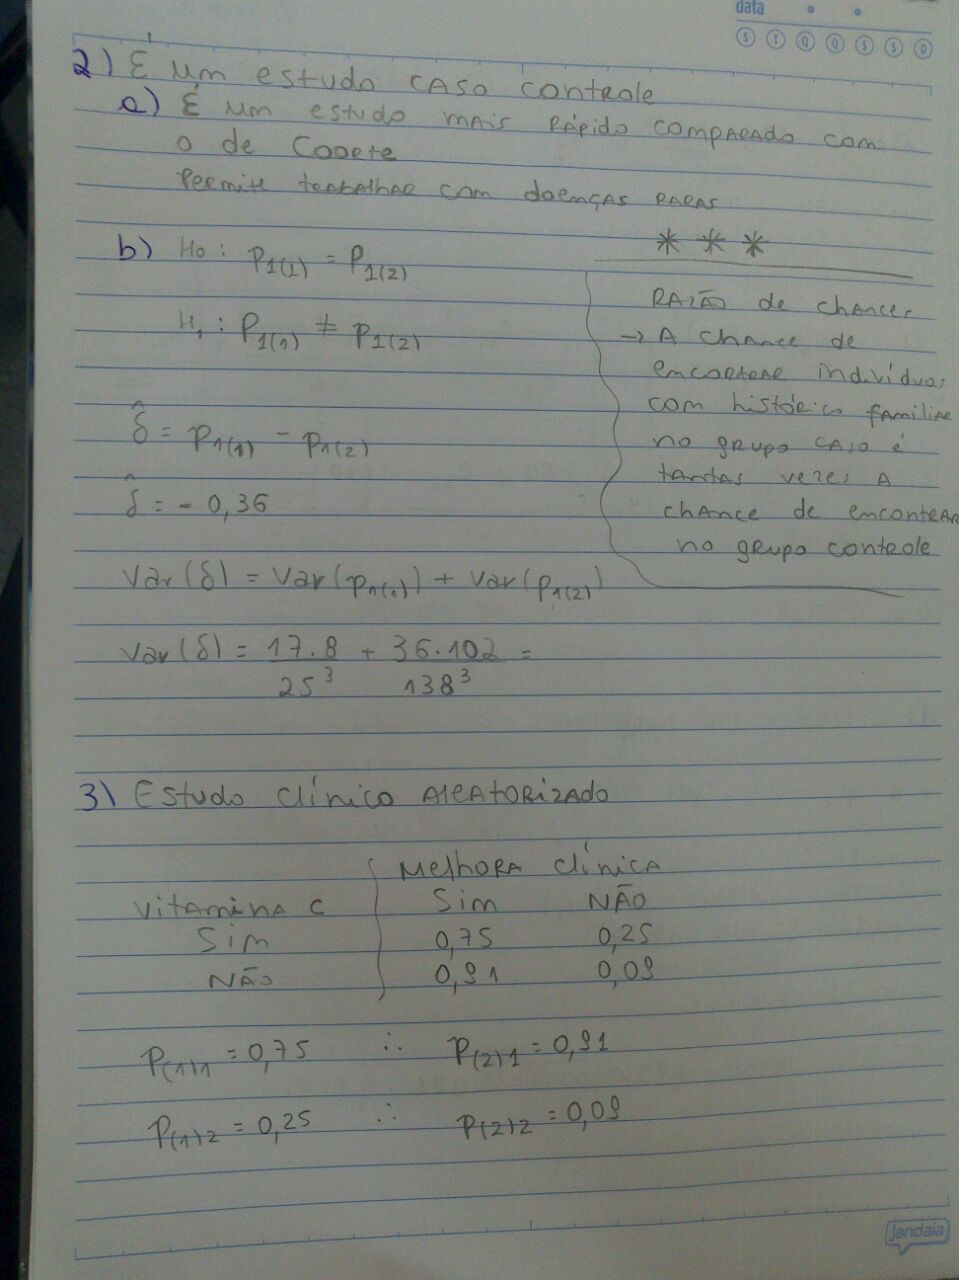 data
S T Q Q S S D
2) É um estudo caso controle
a) É um estudo mais rápido comparado com
o de Coorte
Permite trabalhar com doenças raras
* * *
b) H0 : P1(1) = P1(2)
H1 : P1(1) ≠ P1(2)
δ̂ = P1(1) - P1(2)
δ̂ = - 0,36
Var(δ) = Var(P1(1)) + Var(P1(2))
Var(δ) = 17.8/25³ + 36.102/138³ =
Razão de chances
→ A chance de
encontrar indivíduos
com histórico familiar
no grupo caso é
tantas vezes a
chance de encontrar
no grupo controle
3) Estudo clínico aleatorizado
Melhora clínica
Vitamina C Sim Não
Sim 0,75 0,25
Não 0,91 0,09
P(1)1 = 0,75 ∴ P(2)1 = 0,91
P(1)2 = 0,25 ∴ P(2)2 = 0,09
Jandaia